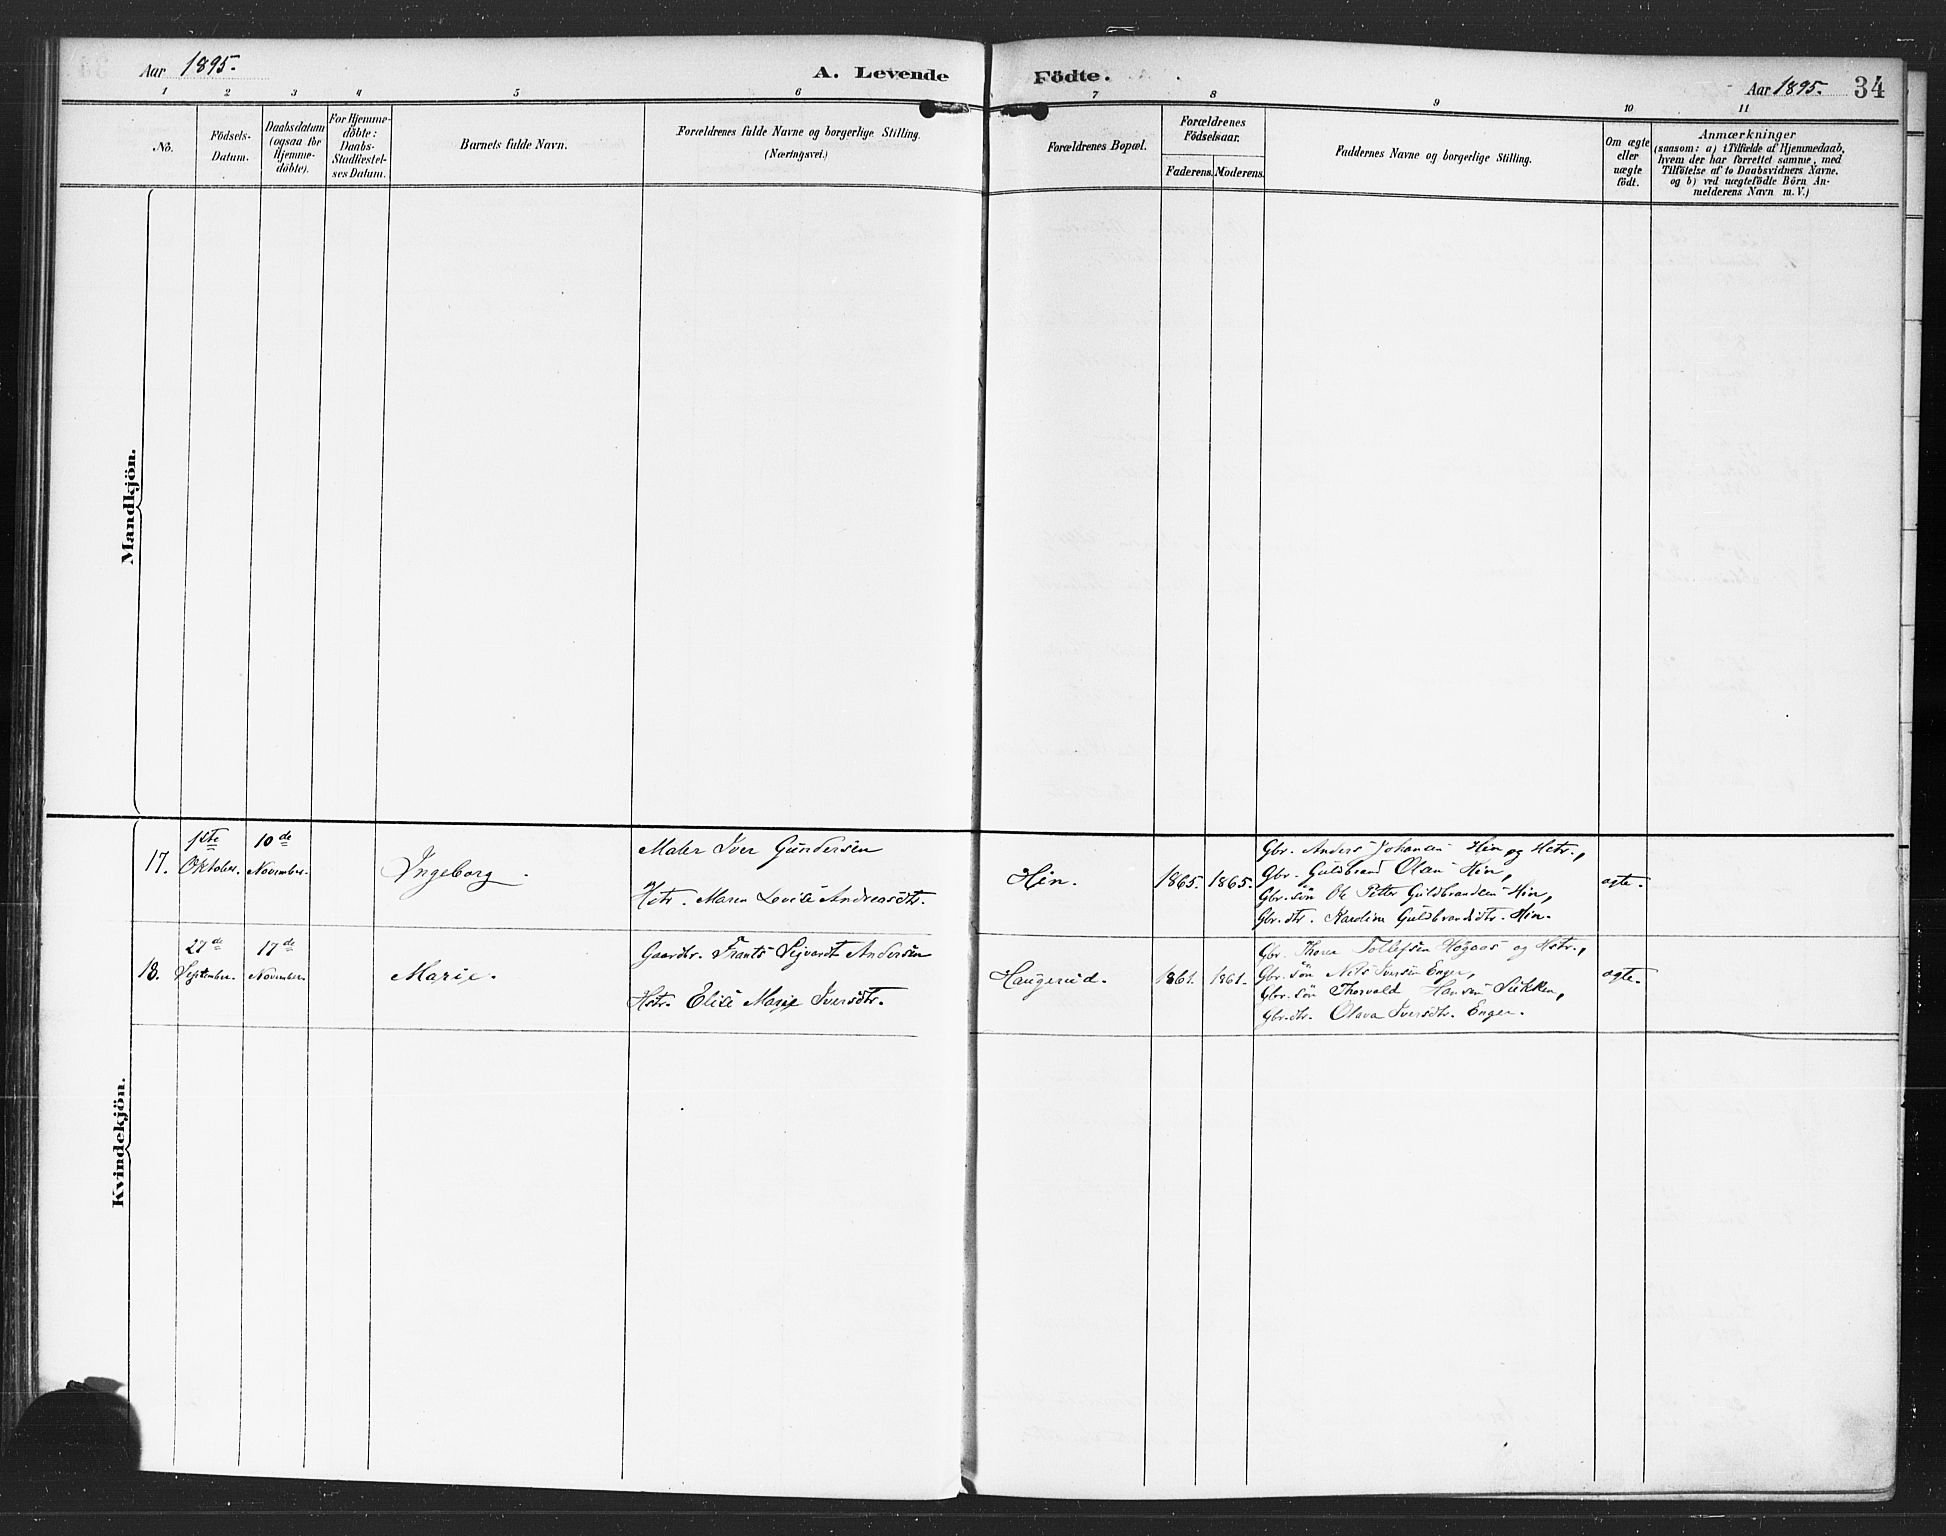 Aar 1895.
A. Levende Födte.
Aar 1895. 34
1 2 3 4 5 6 7 8 9 10 11
No.
Födsels-
Datum.
Daabsdatum
(ogsaa for
Hjemme-
döbte).
For Hjemme-
döbte:
Daabs-
Stadfæstel-
ses Datum.
Barnets fulde Navn.
Forældrenes fulde Navne og borgerlige Stilling.
(Næringsvei.)
Forældrenes Bopæl.
Forældrenes
Födselsaar.
Faderens. Moderens.
Faddernes Navne og borgerlige Stilling.
Om ægte
eller
uægte
födt.
Anmærkninger
(saasom: a) i Tilfælde af Hjemmedaab,
hvem der har forrettet samme, med
Tilföielse af to Daabsvidners Navne,
og b) ved uægtefödte Börn An-
melderens Navn m. V.)
Mandkjön.
Kvindekjön.
17.
1ste
Oktober.
10de
November.
Ingeborg.
Maler Iver Gundersen
Hstr. Maren Lovise Andreasdtr.
Hen.
1865. 1865.
Gbr. Anders Johansen Hen og Hstr.,
Gbr. Guldbrand Olsen Hen,
Gbr.søn Ole Petter Guldbrandsen Hen,
Gbr.dtr. Karoline Guldbrandsdtr. Hen.
ægte.
18.
27de
September.
17de
November.
Marie.
Gaardbr. Frants Sigvardt Andersen
Hstr. Elise Marie Iversdtr.
Haugerud.
1861. 1861.
Gbr. Thore Tollefsen Høgaas og Hstr.,
Gbr.søn Nils Iversen Enger,
Gbr.søn Thorvald Hansen
Gbr.dtr. Olava Iversdtr. Enger.
ægte.